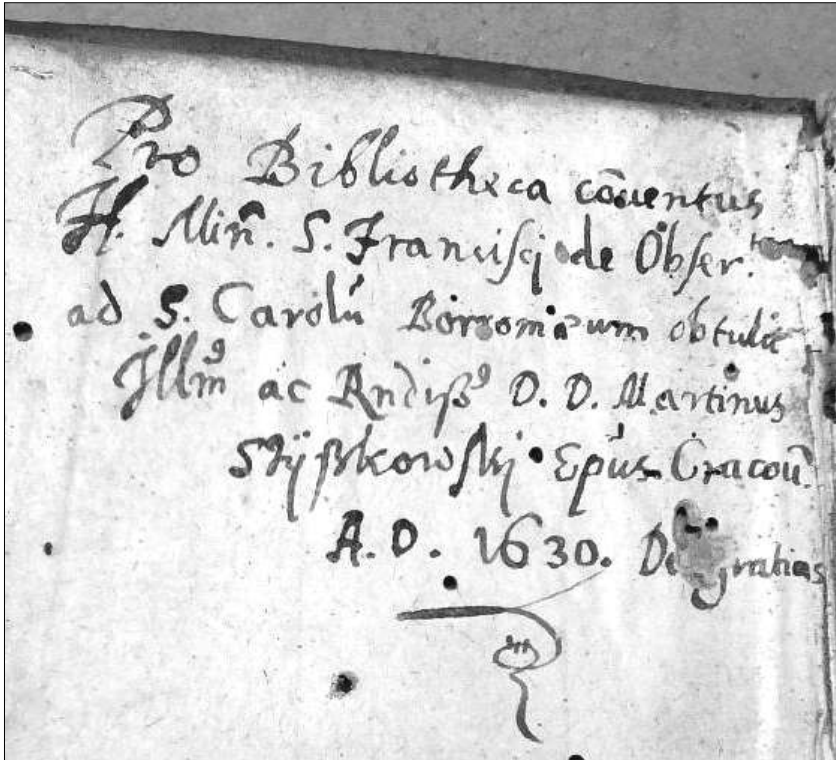 Pro Bibliotheca cōuentus
FF. Min̄. S. Francisci de Obser.
ad S. Carolū Borromæum obtulit
Illm̄9 ac Rndiss9 D. D. Martinus
Szÿszkowskj Epūs Cracoū.
A. D. 1630. Deo gratias